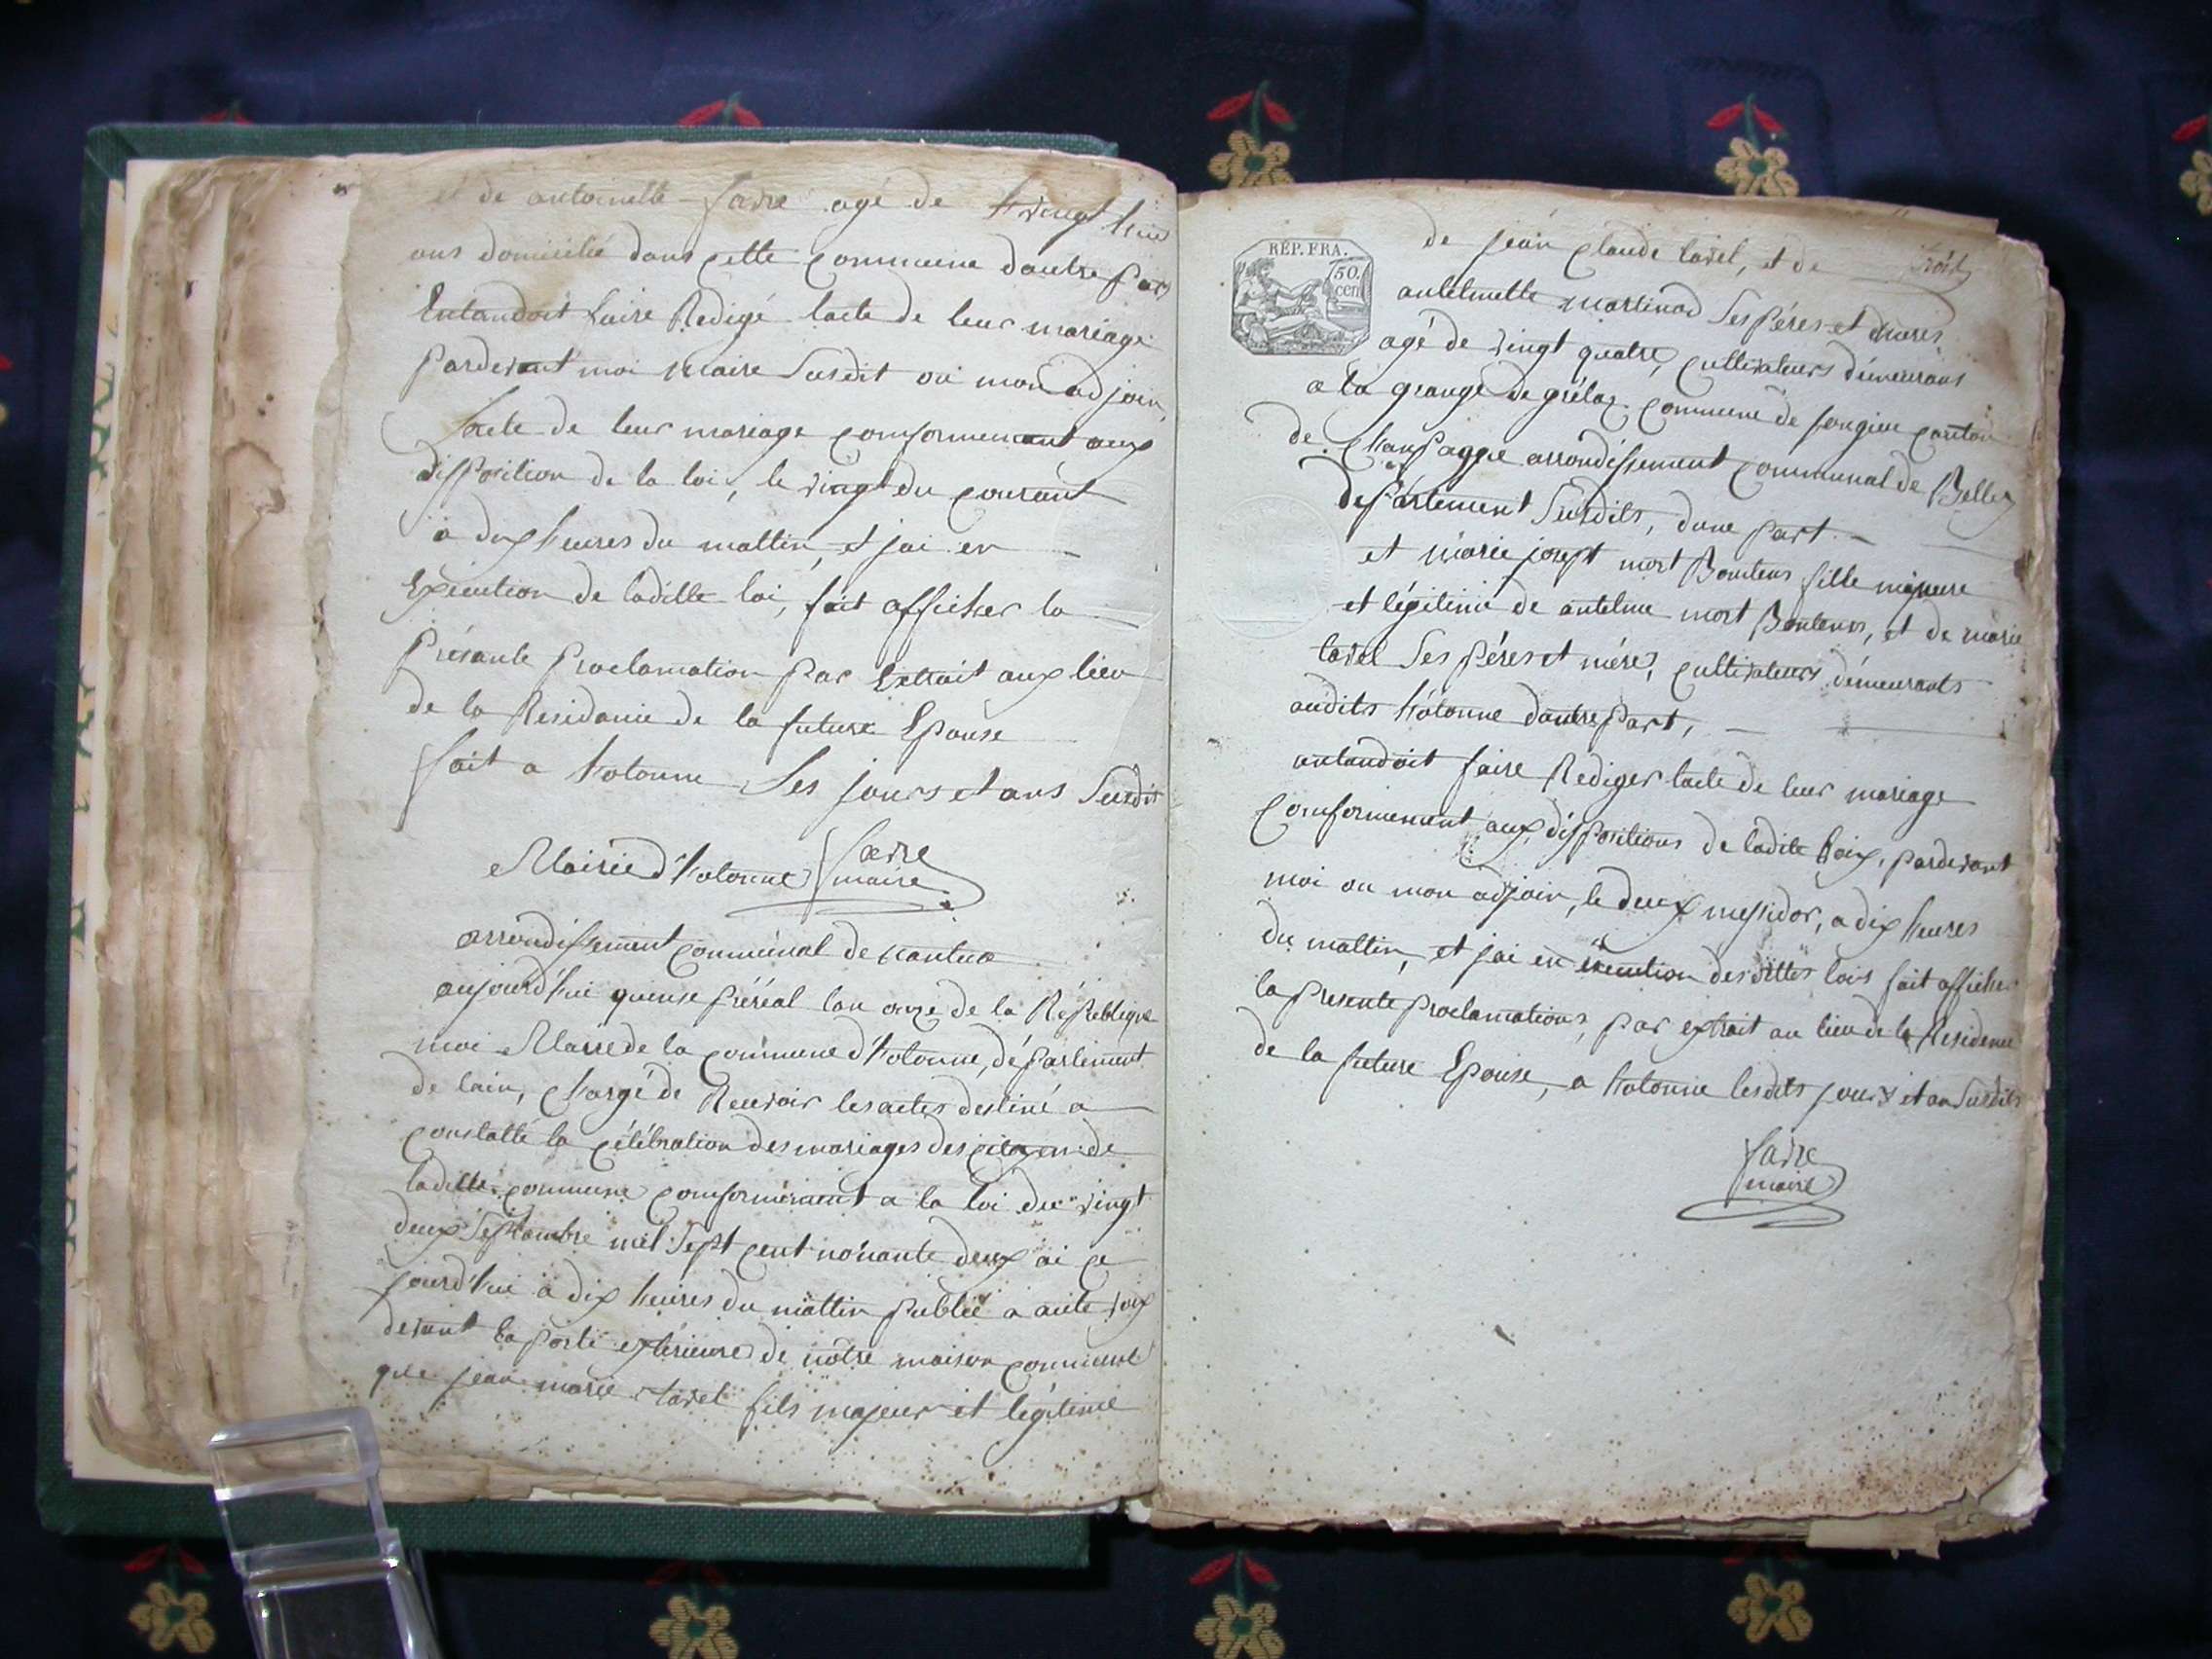 et de antoinette favre agé de vingt huit
ans domicilié dans cette commune dautre part
Entandoit faire Redigé lacte de leur mariage
Pardevant moi maire Susdit ou mon adjoin,
lacte de leur mariage comformement aux
disposition de la loi, le vingt du courant
a dix heures du mattin, et jai en
Exécution de laditte loi, fait afficher la
Présante Proclamation par Extrait aux lieu
de la Residance de la future Epouse
fait a hotonne Les jours et ans Susdit
Mairie d'hotonne favre
maire
arrondissement communal de nantua
aujourd'hui quense préréal lan onze de la République
moi Maire de la commune d'hotonne, département
de lain, chargé de Recevoir les actes destiné a
constatté la célébration des mariages des citoyen de
laditte commune comformément a la loi du vingt
deux Septembre mil Sept cent nonante deux ai ce
jourd'hui a dix heures du mattin publié a aute voix
devant la porte extérieure de notre maison commune
que jean marie tavel fils majeur et légitime
RÉP. FRA.
50.
cen
de jean claude tavel, et de
antelmette martinad Ses péres et méres
agé de vingt quatre, cultivateurs démeurans
a la grange de grélaz commune de songieu canton
de Champagne arrondissement communal de Belley
département Susdits, dune part
et marie josept mort Bontens fille majeure
et légitime de antelme mort Bontems, et de marie
tavel Ses péres et méres, cultivateurs démeurants
audits hotonne dautre part,
antandoit faire Rediger lacte de leur mariage
comformement aux dispositions de ladite loix, pardevant
moi ou mon adjoin, le deux messidor, a dix heures
du mattin, et jai en exécution desdittes lois fait afficher
la presente proclamations, par extrait au lieu de la Residence
de la future Epouse, a hotonne lesdits jours et an Susdits
favre
maire